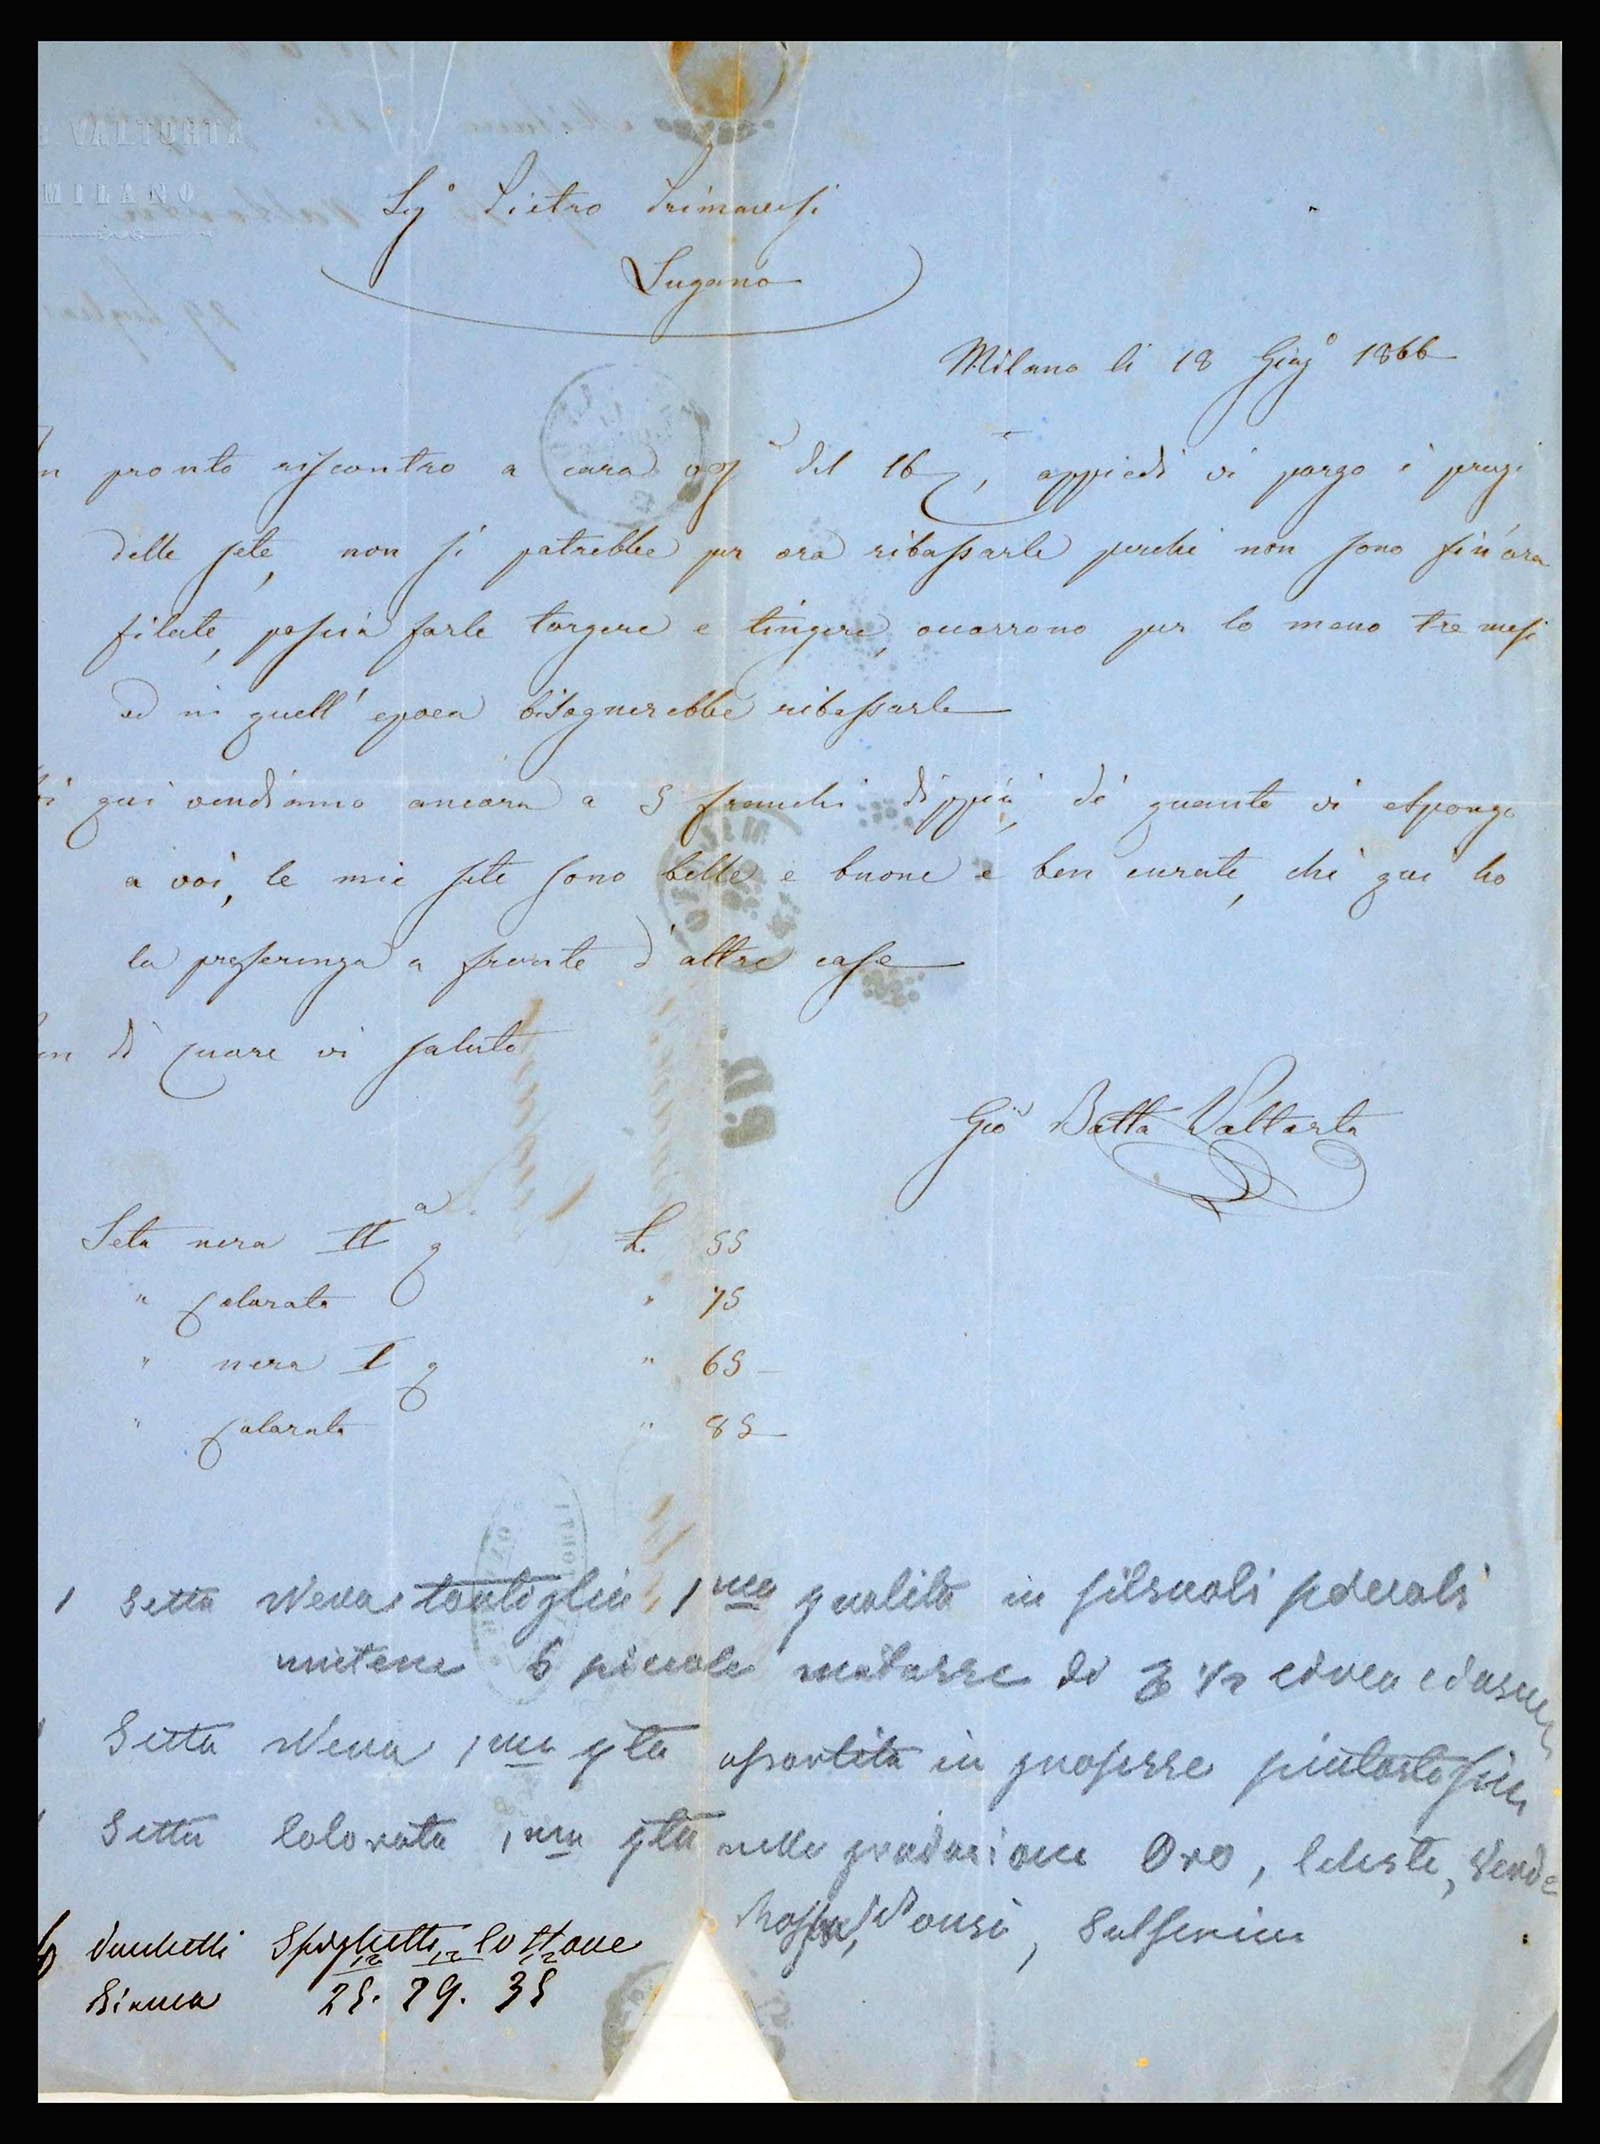 VALTORTA
MILANO
Sig.º Pietro Primavesi
Lugano
Milano li 18 Giugº 1866
In pronto riscontro a cara del 16, appiedi vi porgo i prezzi
delle sete, non si potrebbe per ora ribassarle perchè non sono fin'ora
filate, poscia farle torgere e tingere, ocorrono per lo meno tre mesi
ed in quell'epoca bisognerebbe ribassarle
qui vendiamo ancora a 5 franchi dippiù, di quanto vi espongo
a voi, le mie sete sono belle e buone e ben curate, chè qui ho
la presferenza a fronte d'altre case
di cuore vi saluto
Gio Batta Valtorta
Seta nera II a q L. 55
" colorata " 75
" nera I q " 65 -
" colorata " 85
1 Setta Nera 1ma qualità in
6 piccole matasse di 3 1/2 circa
Setta Nera 1ma qta assortita in grossesse piutosto fin
Setta Colorata 1ma qta nelle gradazione Oro, Celeste, Verde
Rossa, Ponsi, Solferino
6 Spighetta Cottone
Bianca 25. 29. 35